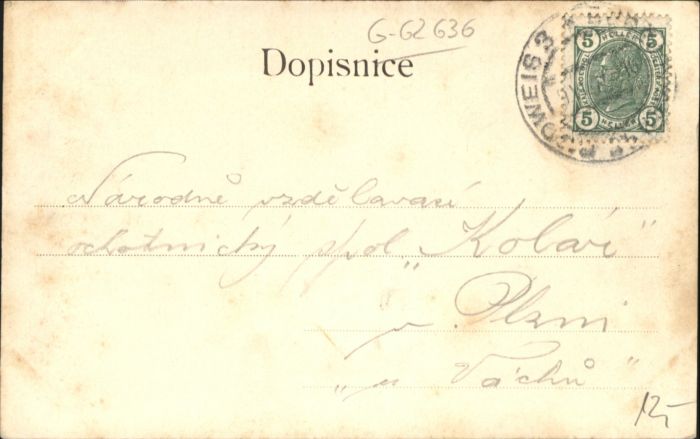 G-62636
Dopisnice
5 HELLER 5
5 HELLER 5
BUDWEIS 3
Národně vzdělavací
ochotnický spol. „Kolár"
v Plzni
„u Váchů"